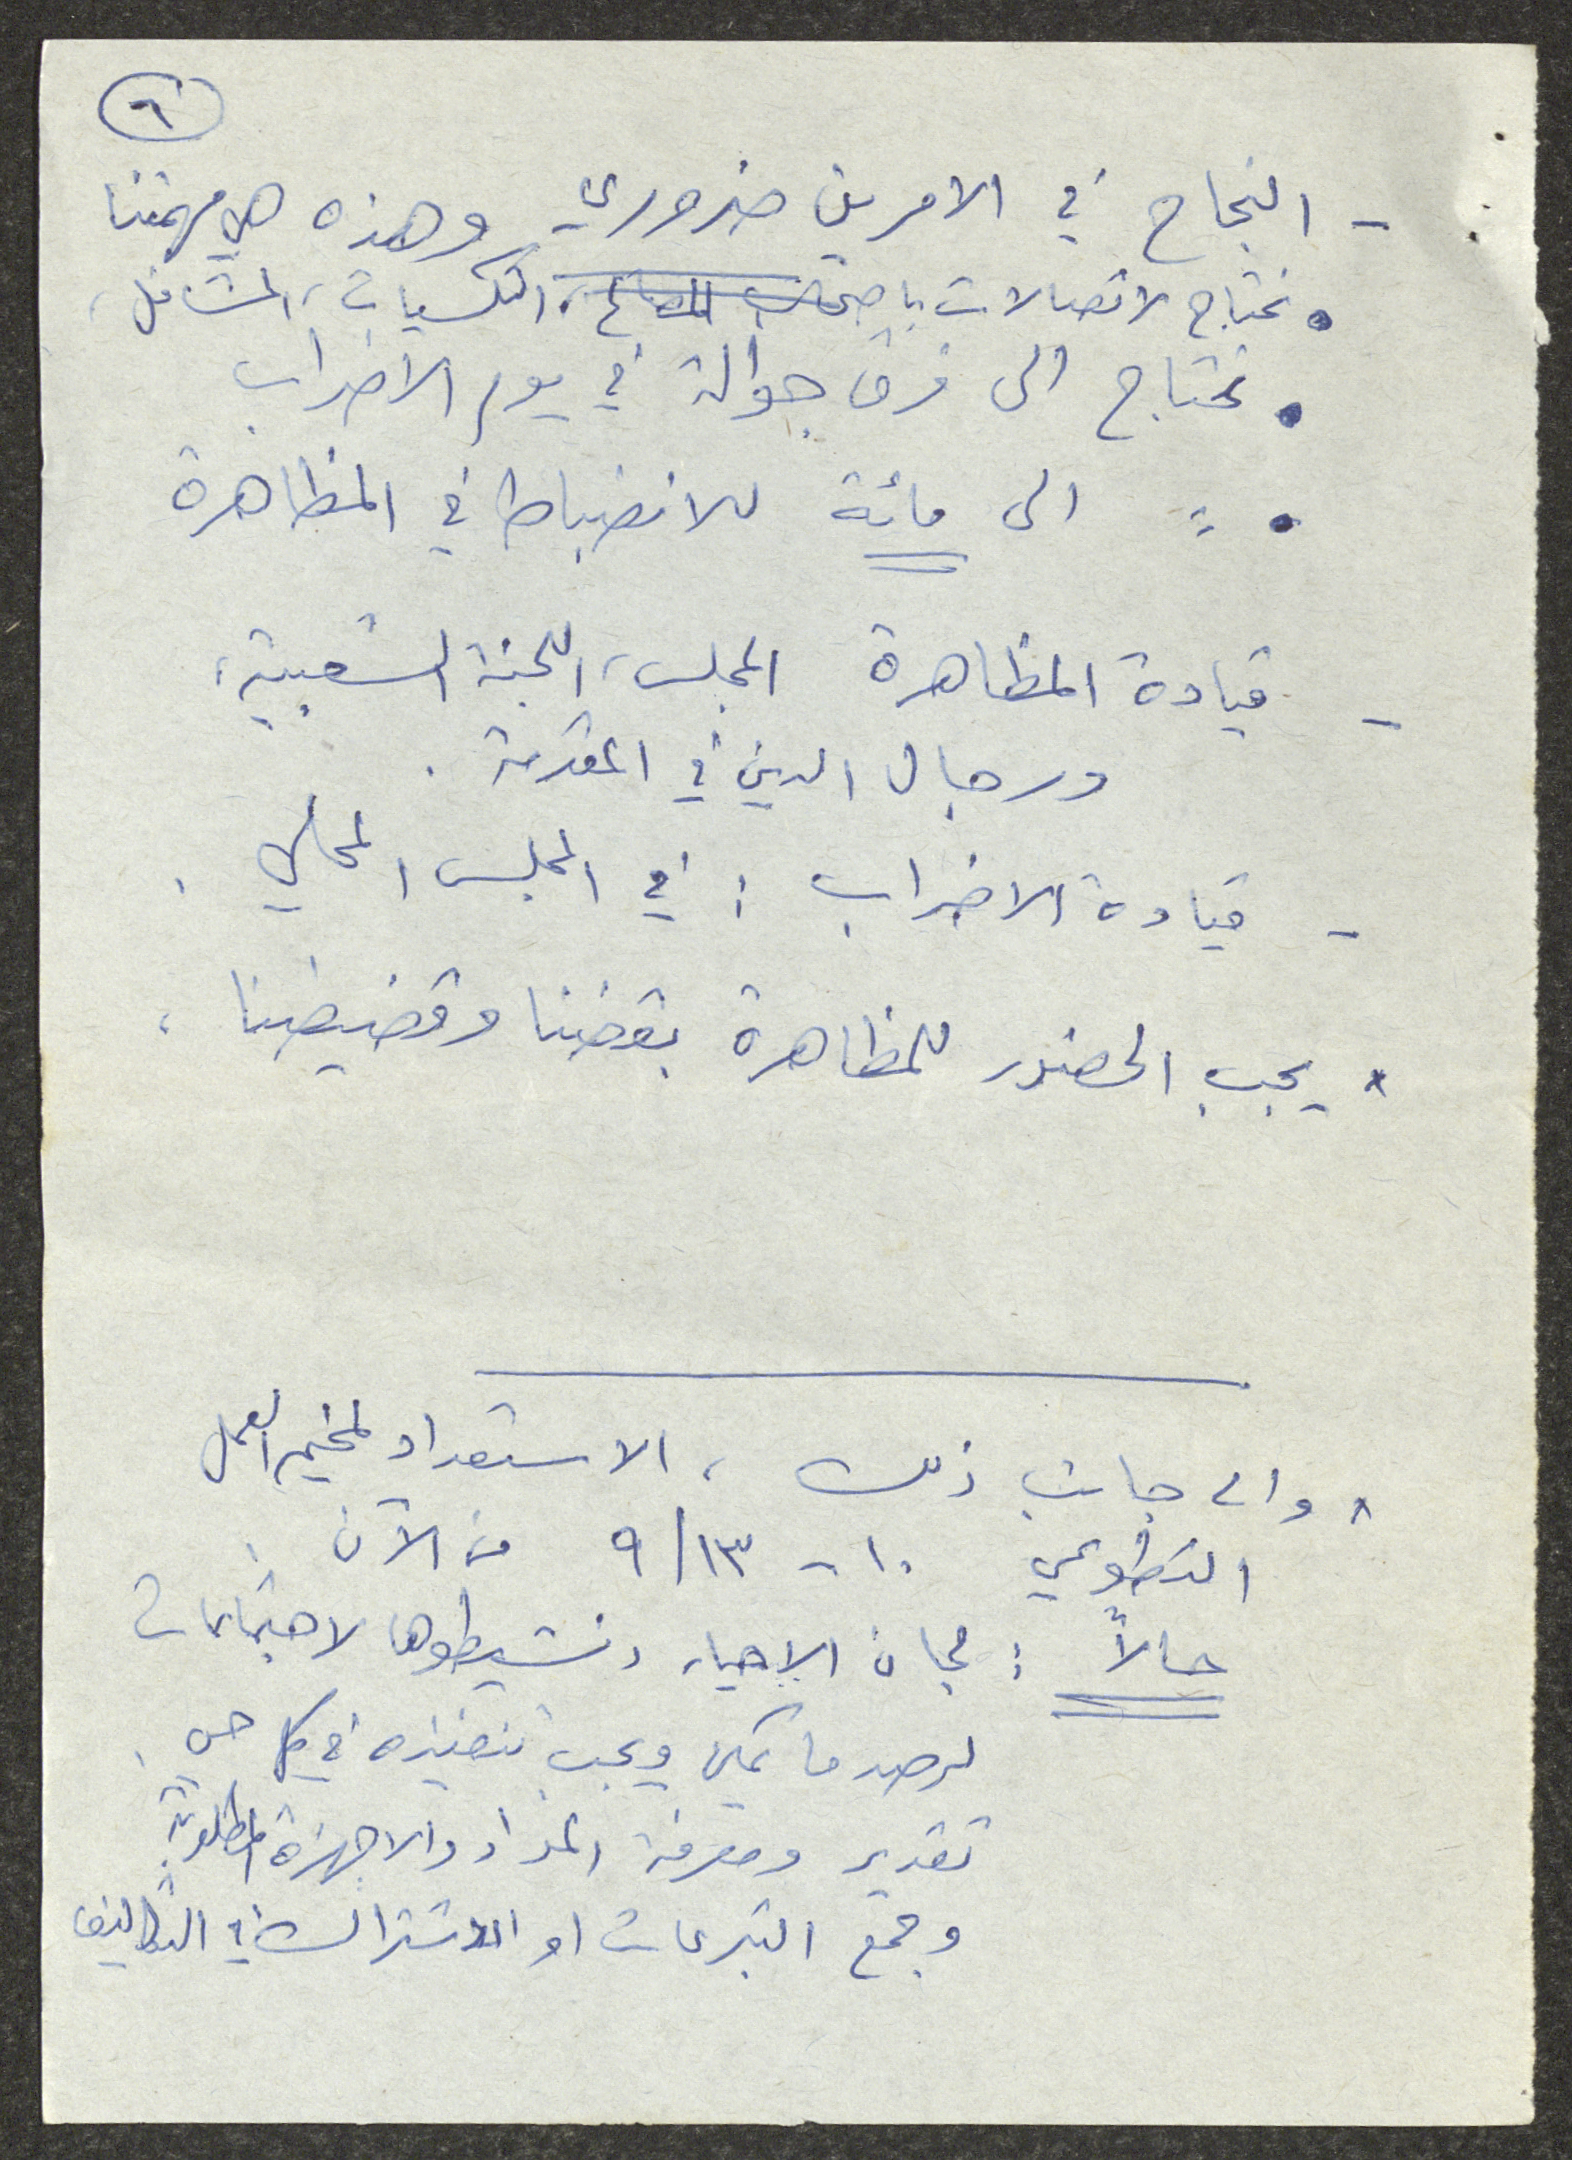 ٦
- النجاح في الامرين ضروري وهذه هي مهمتنا
• نحتاج لاتصالات باصحاب المصانع، التكسيات، المشاغل،
• نحتاج الى فرق جوالة في يوم الاضراب
• = الى مائة للانضباط في المظاهرة
- قيادة المظاهرة المجلس، اللجنة الشعبية،
ورجال الدين في المقدمة .
- قيادة الاضراب : في المجلس المحلي .
* يجب الحضور للمظاهرة بقضنا وقضيضنا ،
* والى جانب ذلك ، الاستعداد لمخيم العمل
التطوعي ١٠ - ٩/١٣ من الآن .
حالاً : لجان الاحياء ونشيطوها لاجتماعات
لرصد ما يمكن ويجب تنفيذه في كل حي .
تقدير ومعرفة المواد والاجهزة المطلوبة
وجمع التبرعات او الاشتراك في التكاليف